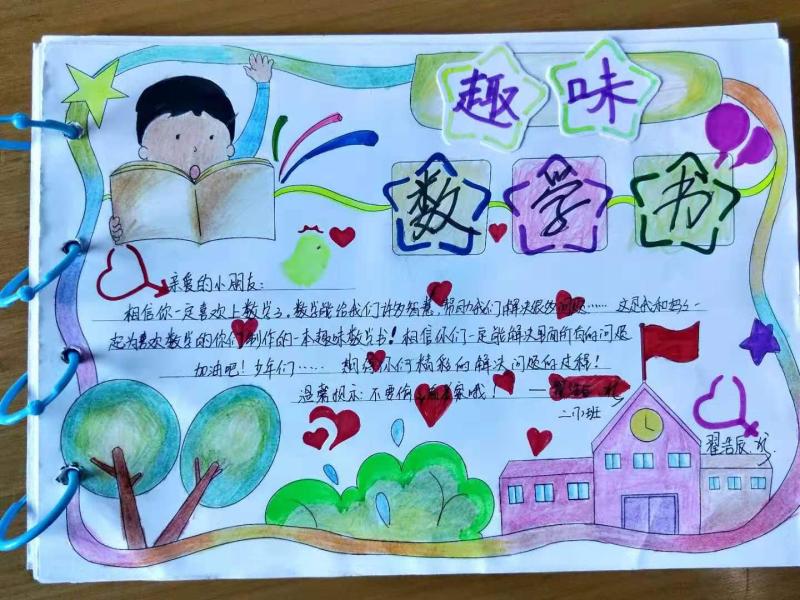 趣味
数学书
亲爱的小朋友：
相信你一定喜欢上数学了，数学能给我们许多智慧，帮助我们解决很多问题……这是我和妈妈一
起为喜欢数学的你们制作的一本趣味数学书！相信你们一定能解决里面所有的问题
加油吧！少年们……期待你们精彩的解决问题的过程！
温馨提示：不要偷看答案哦！——
二（1）班
翟浩辰